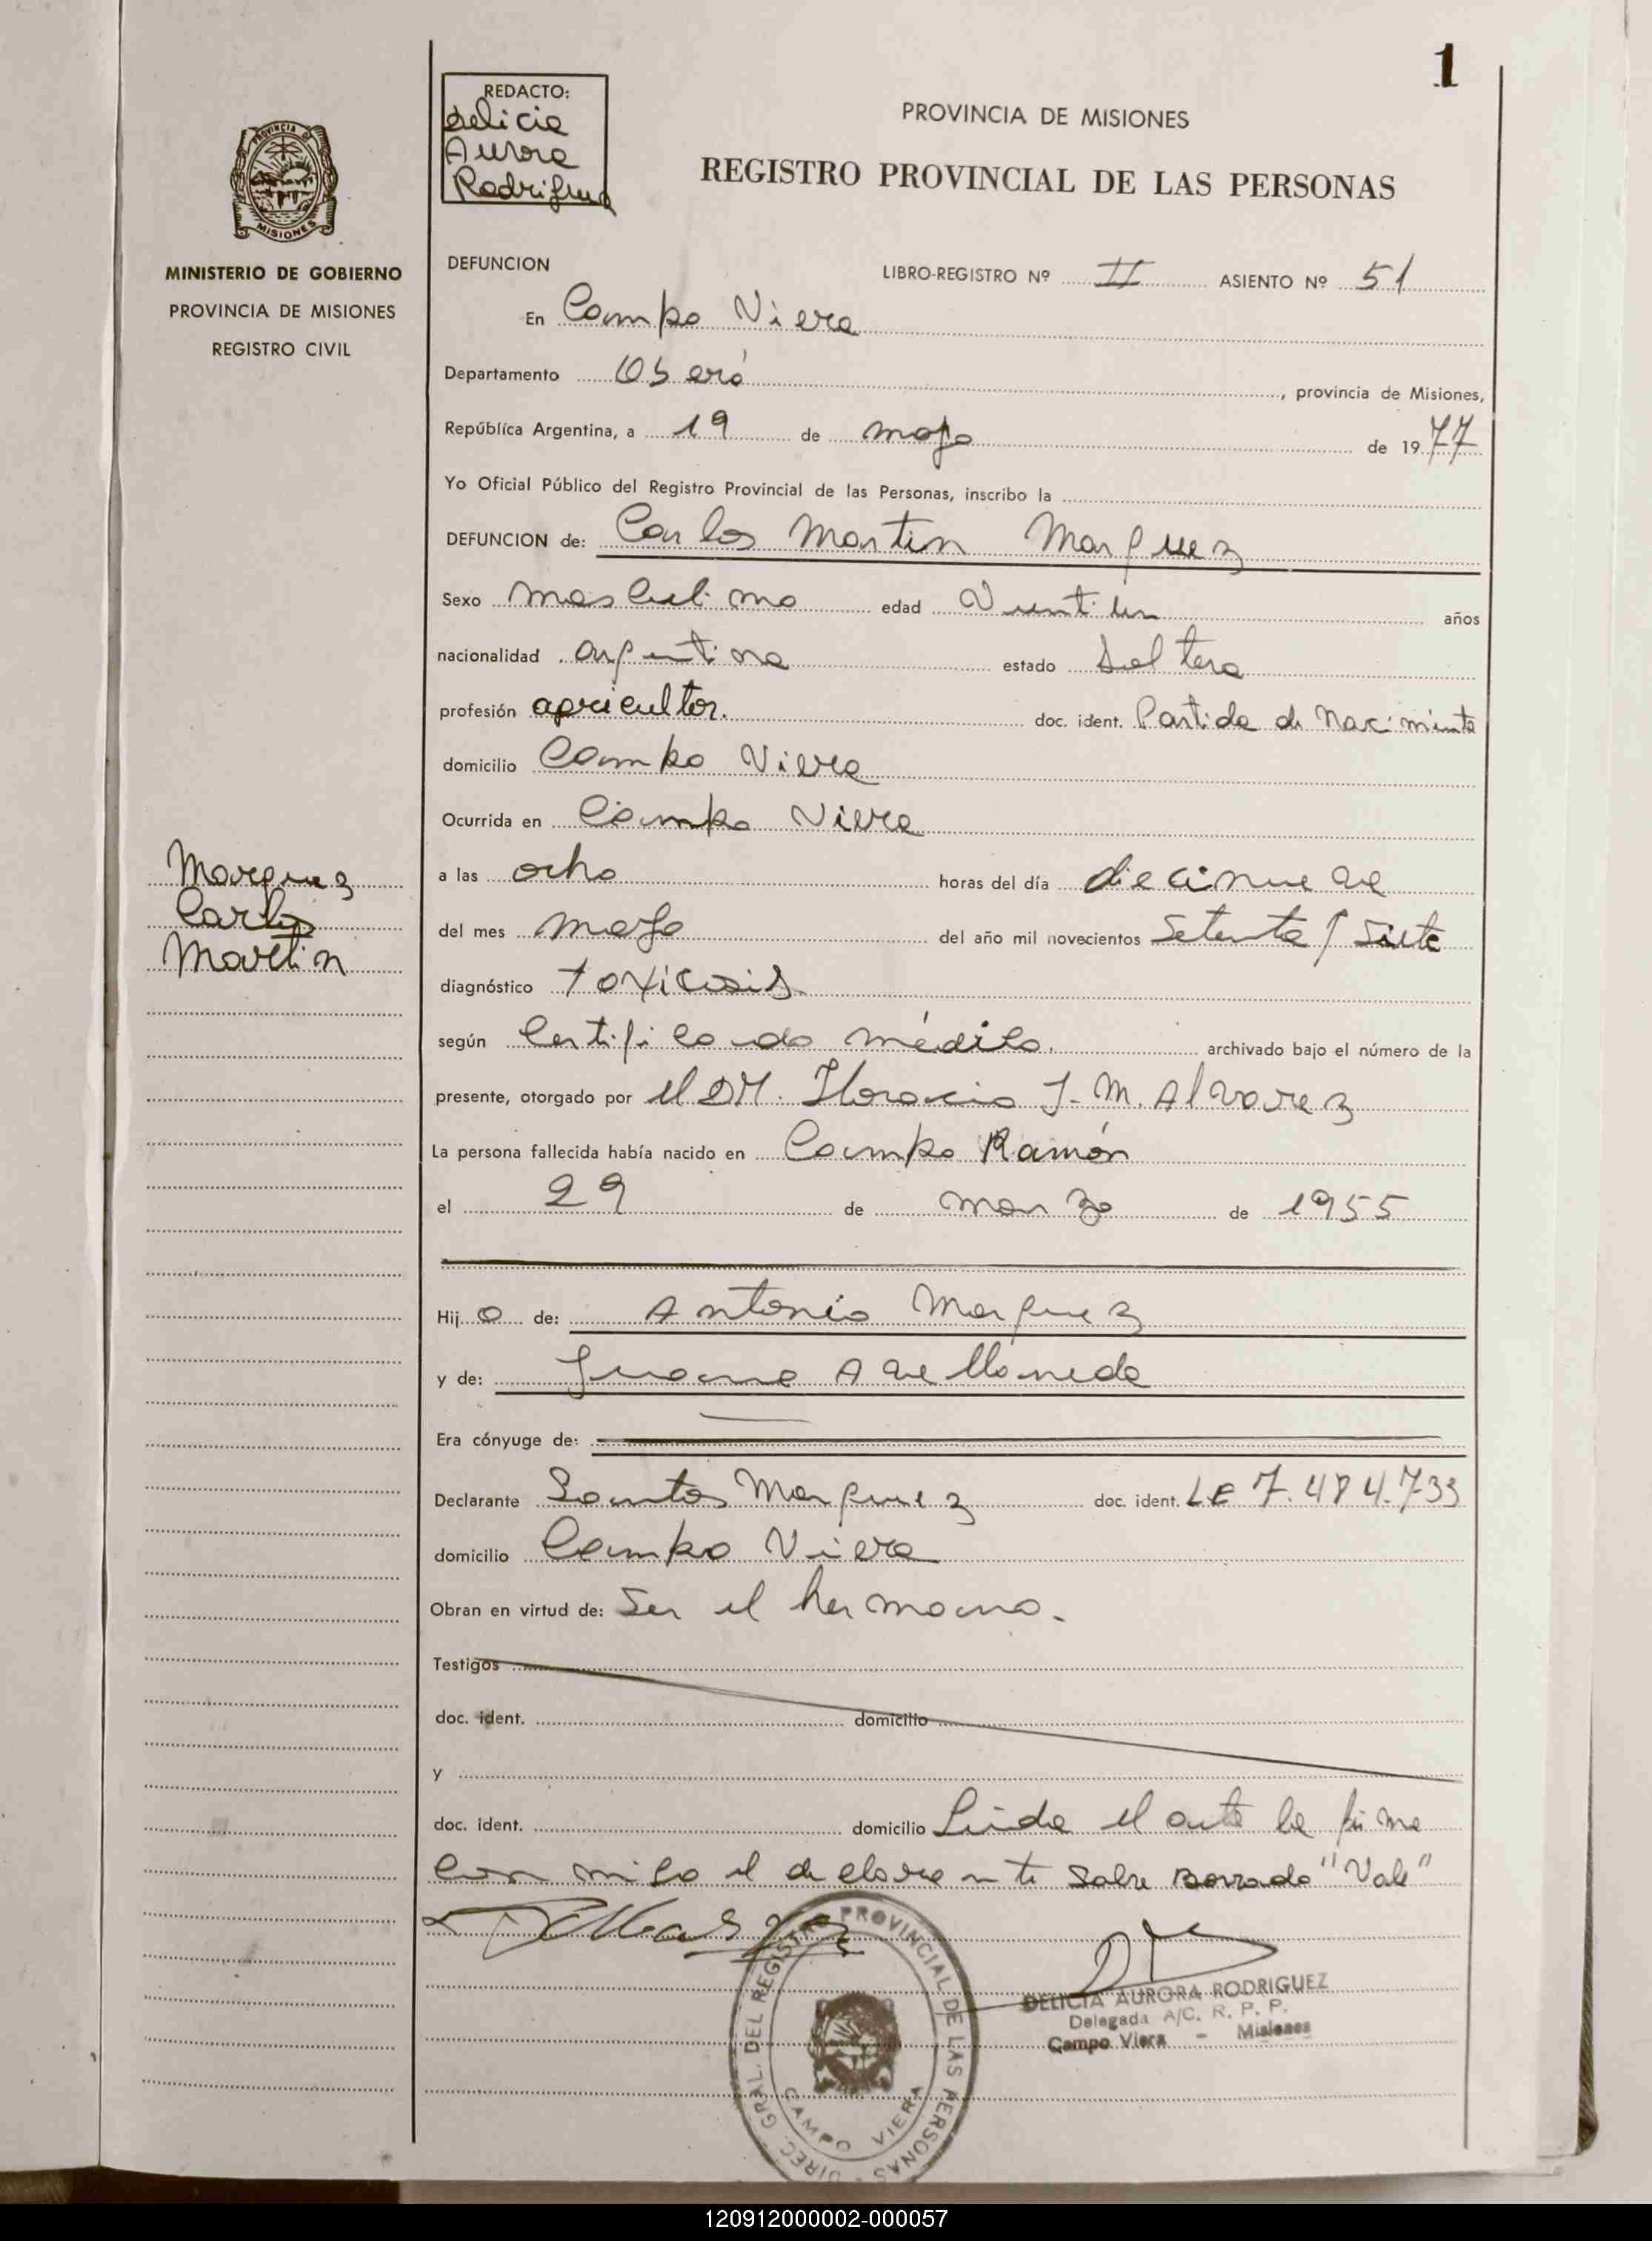 1
REDACTO:
Delicia
Aurora
Rodriguez
PROVINCIA DE MISIONES
REGISTRO PROVINCIAL DE LAS PERSONAS
PROVINCIA D
MISIONES
MINISTERIO DE GOBIERNO
PROVINCIA DE MISIONES
REGISTRO CIVIL
DEFUNCION
LIBRO-REGISTRO Nº II ASIENTO Nº 51
En Campo Viera
Departamento Oberá, provincia de Misiones,
República Argentina, a 19 de mayo de 1977
Yo Oficial Público del Registro Provincial de las Personas, inscribo la
DEFUNCION de: Carlos Martin Marquez
Sexo masculino edad Veintiun años
nacionalidad argentina estado Soltero
profesión agricultor. doc. ident. Partida de Nacimiento
domicilio Campo Viera
Ocurrida en Campo Viera
a las ocho horas del día diecinueve
del mes mayo del año mil novecientos Setenta y Siete
diagnóstico toxicosis
según Certificado médico. archivado bajo el número de la
presente, otorgado por el DR. Horacio J. M. Alvarez
La persona fallecida había nacido en Campo Ramón
el 29 de marzo de 1955
Hijo de: Antonio Marquez
y de: Juana Avellaneda
Era cónyuge de:
Declarante Santos Marquez doc. ident. LE 7.484.733
domicilio Campo Viera
Obran en virtud de: Ser el hermano.
Testigos
doc. ident. domicilio
y
doc. ident. domicilio Leida el acta la firma
conmigo el declarante Sobre Borrado "Vale"
Marquez
Carlos
Martin
DIREC. GRAL. DEL REGISTRO PROVINCIAL DE LAS PERSONAS
CAMPO VIERA
DELICIA AURORA RODRIGUEZ
Delegada A/C. R. P. P.
Campo Viera - Misiones
120912000002-000057